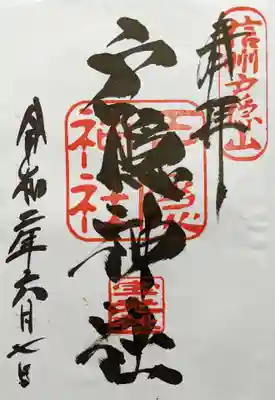 奉拝
信州戸隠山
戸隠神社
戸隠
神社
令和二年六月七日